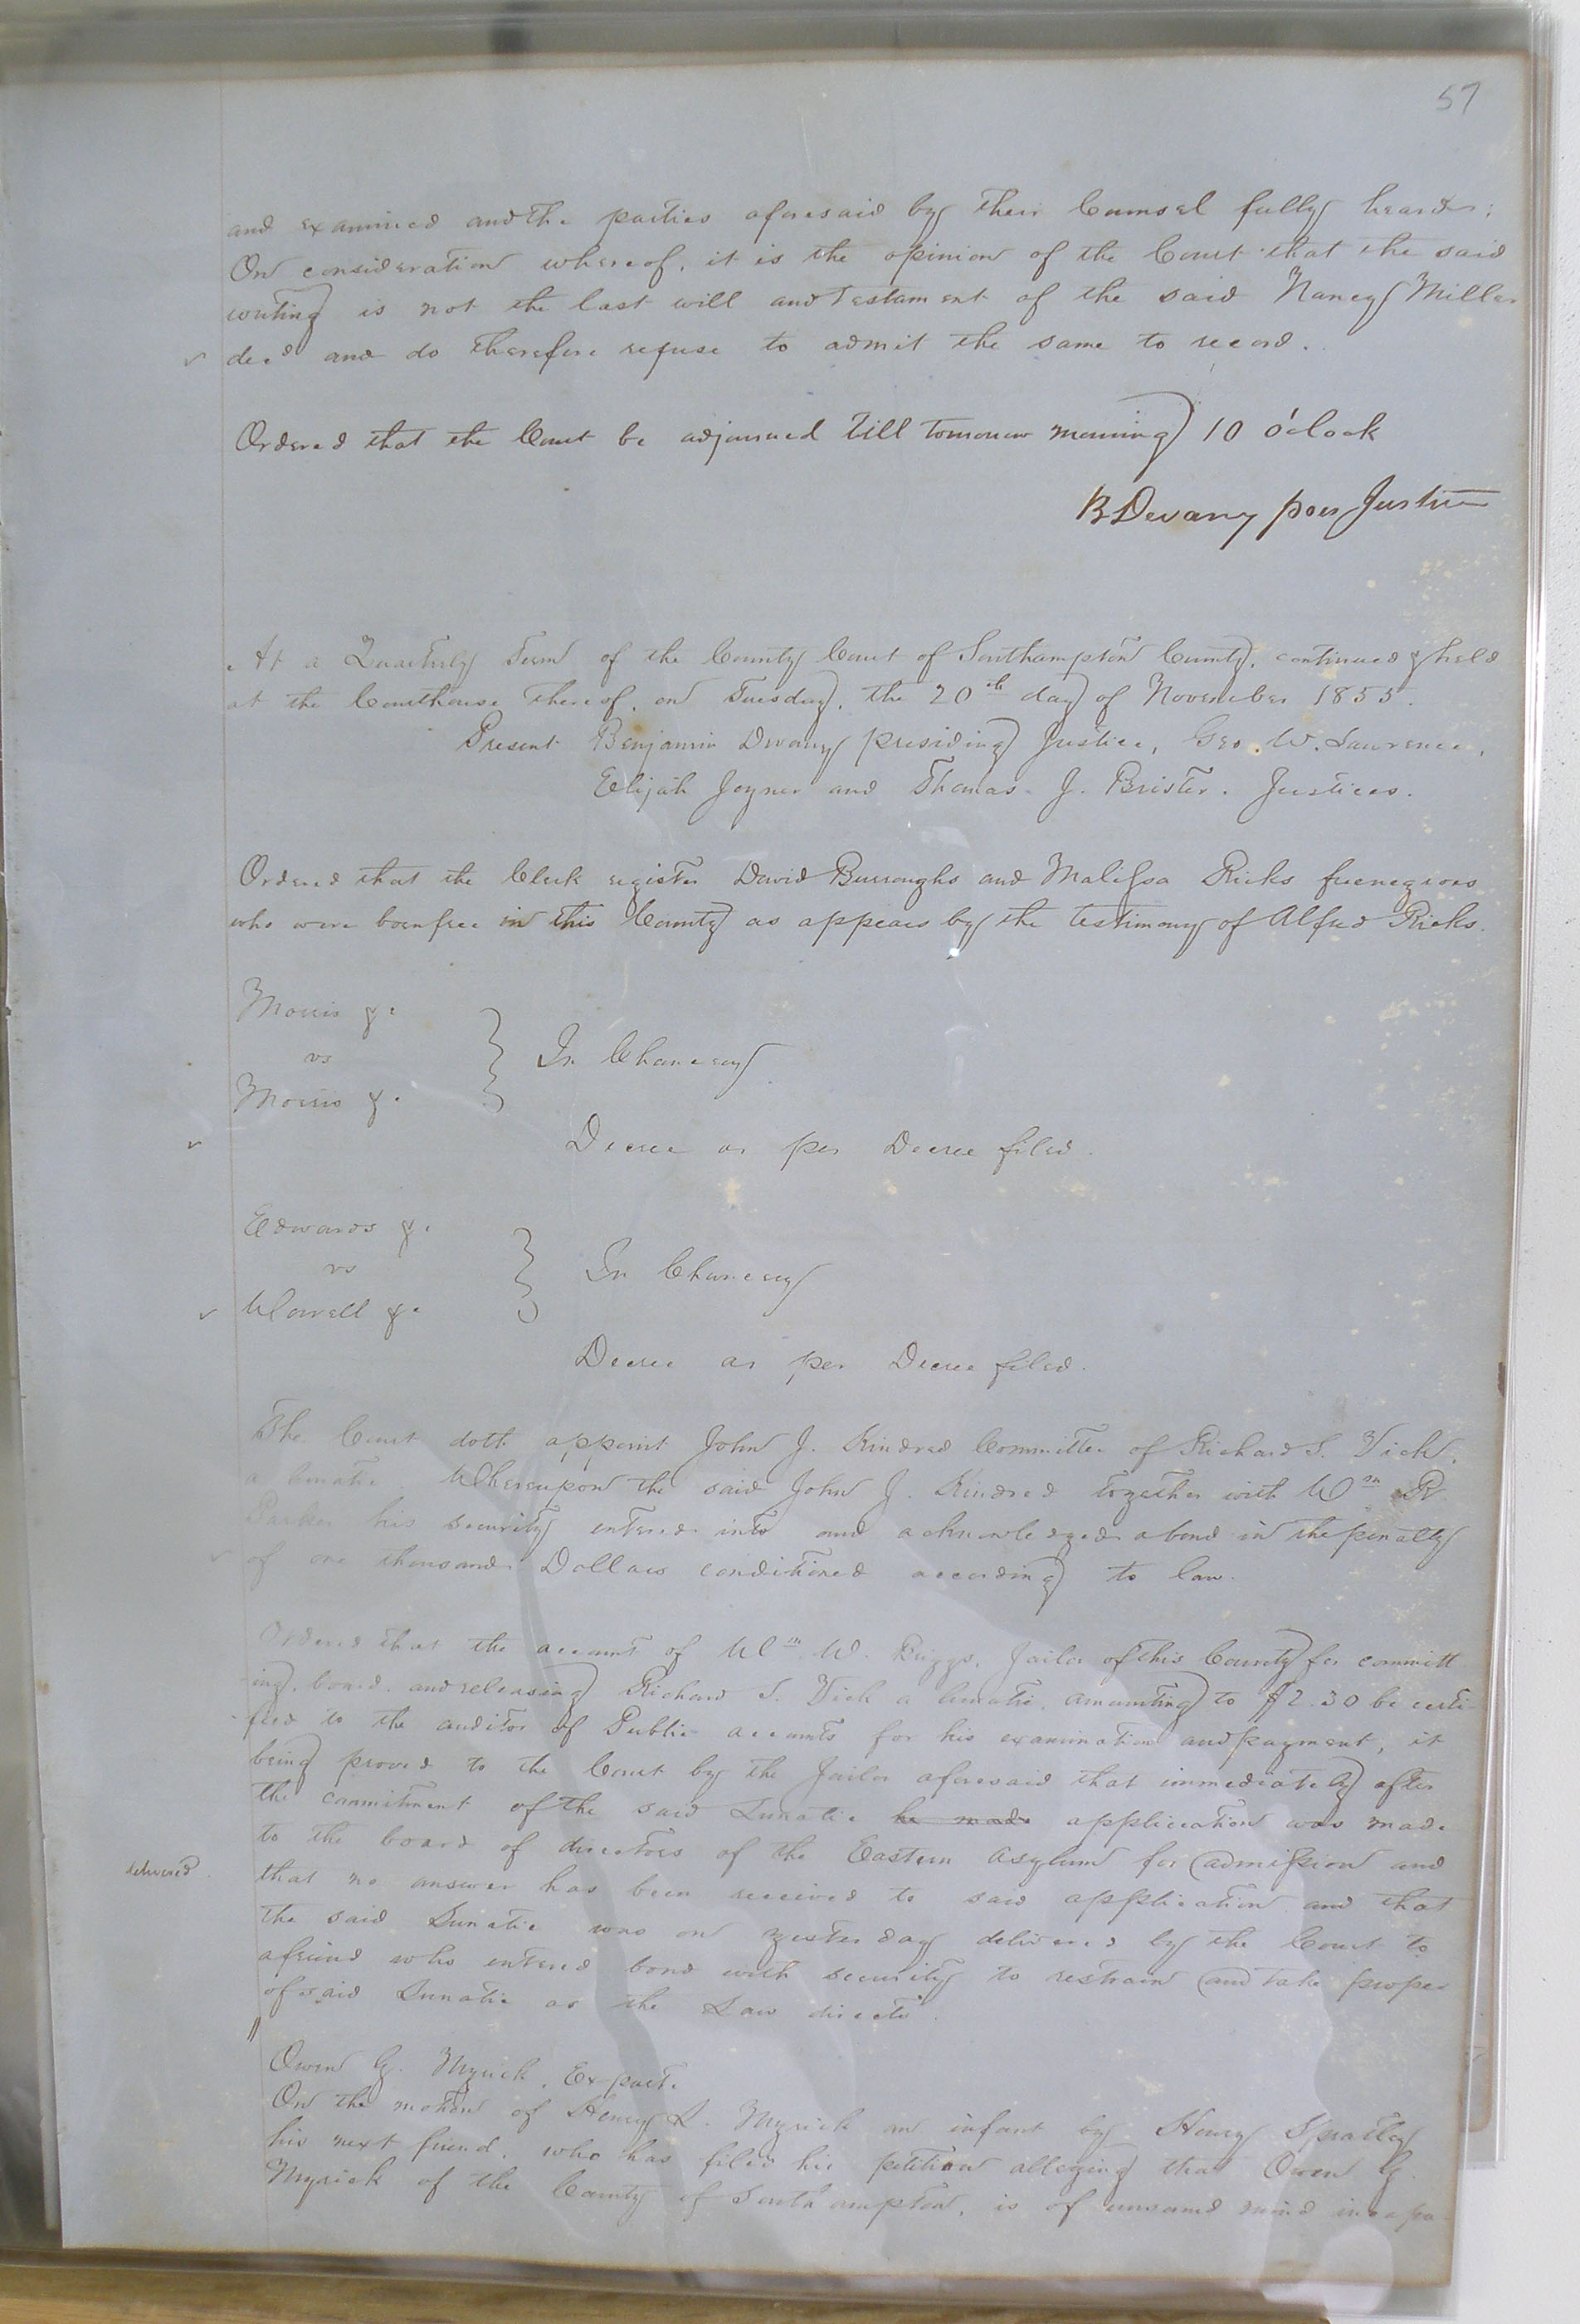 57
and examined and the parties aforesaid by their Counsel fully heard;
On consideration whereof, it is the opinion of the Court that the said
writing is not the last will and Testament of the said Nancy Miller
decd and do therefore refuse to admit the same to record.
Ordered that the Court be adjourned till tomorrow morning 10 o'clock
B Devany pres Justice
At a Quarterly Term of the County Court of Southampton County, continued & held
at the Courthouse thereof, on Tuesday, the 20th day of November 1855.
Present Benjamin Devany presiding Justice, Geo. W. Lawrence,
Elijah Joyner and Thomas J. Brister. Justices.
Ordered that the Clerk register David Burroughs and Malissa Ricks free negroes
who were born free in this County as appears by the testimony of Alfred Ricks.
Morris &c
vs
Morris &c
In Chancery
Decree as per Decree filed.
Edwards &c
vs
Worrell &c
In Chancery
Decree as per Decree filed.
The Court doth appoint John J. Kindred Committee of Richard S. Vick,
a lunatic. Whereupon the said John J. Kindred together with Wm R
Parker his security entered into and acknowledged a bond in the penalty
of one thousand Dollars conditioned according to law.
Ordered that the account of Wm W. Briggs, Jailor of this County for committ
ing, board, and releasing Richard S. Vick a lunatic, amounting to $2.30 be certi-
fied to the auditor of Public accounts for his examination and payment, it
being proved to the Court by the Jailor aforesaid that immediately after
the commitment of the said Lunatic he made application was made
to the board of directors of the Eastern Asylum for admission and
delivered
that no answer has been received to said application and that
the said Lunatic was on yesterday delivered by the Court to
a friend who entered bond with security to restrain and take proper
of said Lunatic as the Law directs.
Owen G. Myrick, Ex parte
On the motion of Henry L. Myrick an infant by Henry Spratley
his next friend, who has filed his petition alleging that Owen G.
Myrick of the County of Southampton, is of unsound mind incapa-